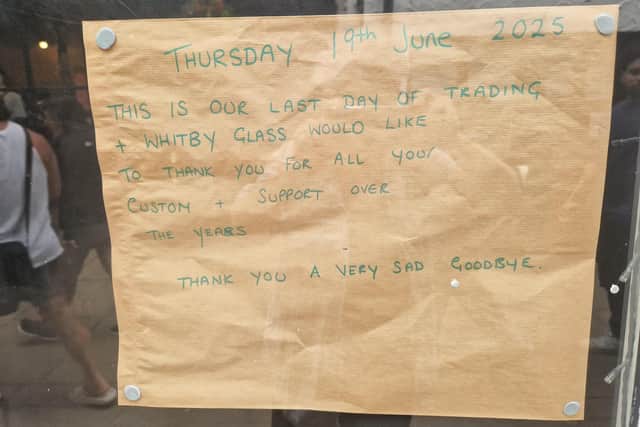 THURSDAY 19th JUNE 2025
THIS IS OUR LAST DAY OF TRADING
+ WHITBY GLASS WOULD LIKE
TO THANK YOU FOR ALL YOUR
CUSTOM + SUPPORT OVER
THE YEARS
THANK YOU A VERY SAD GOODBYE.